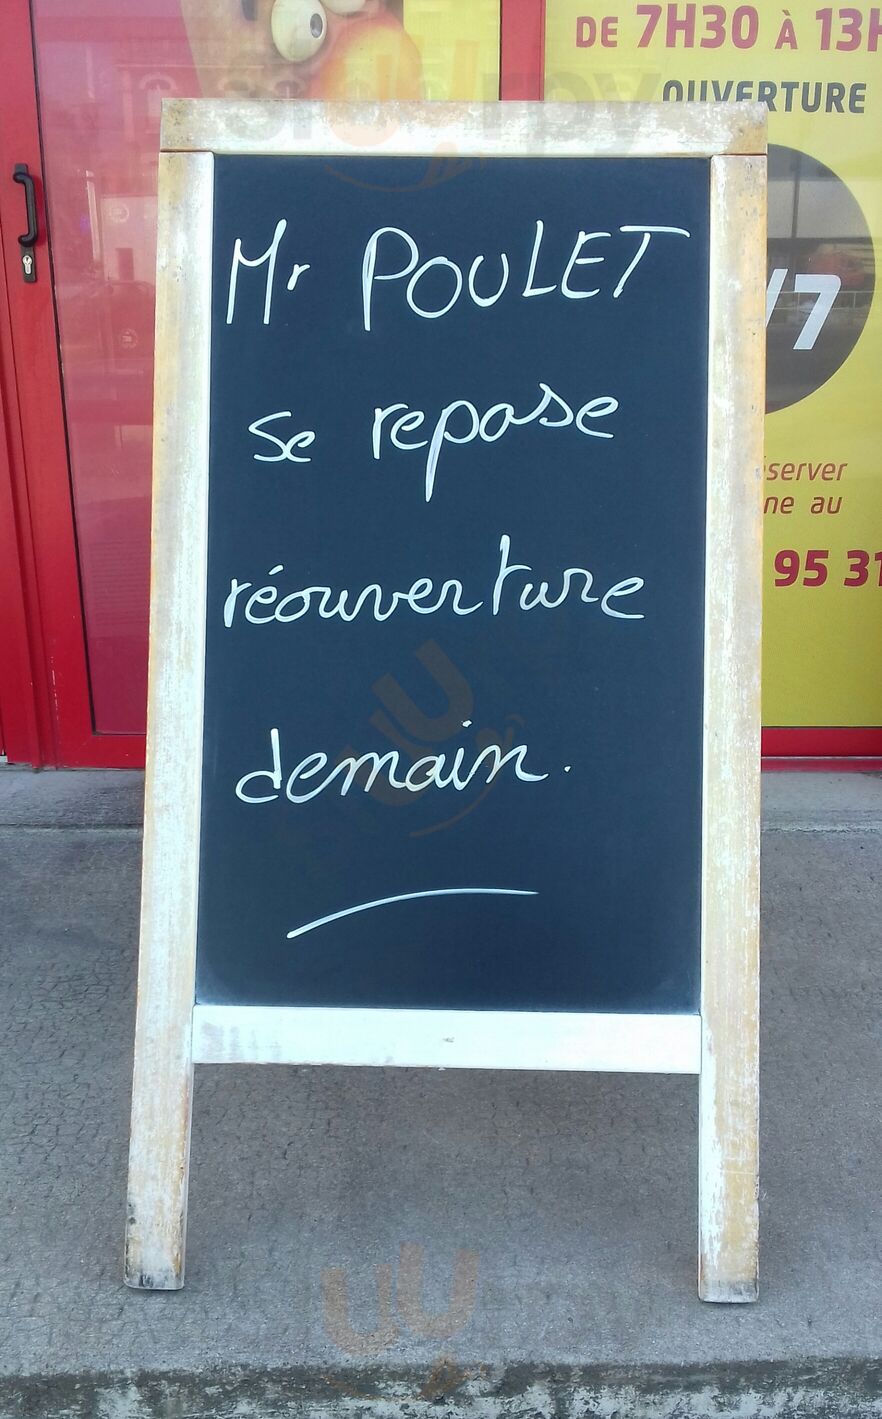 DE 7H30 À 13H
OUVERTURE
/7
Mr POULET
se repose
réouverture
demain.
server
ne au
95 31
sluurpy